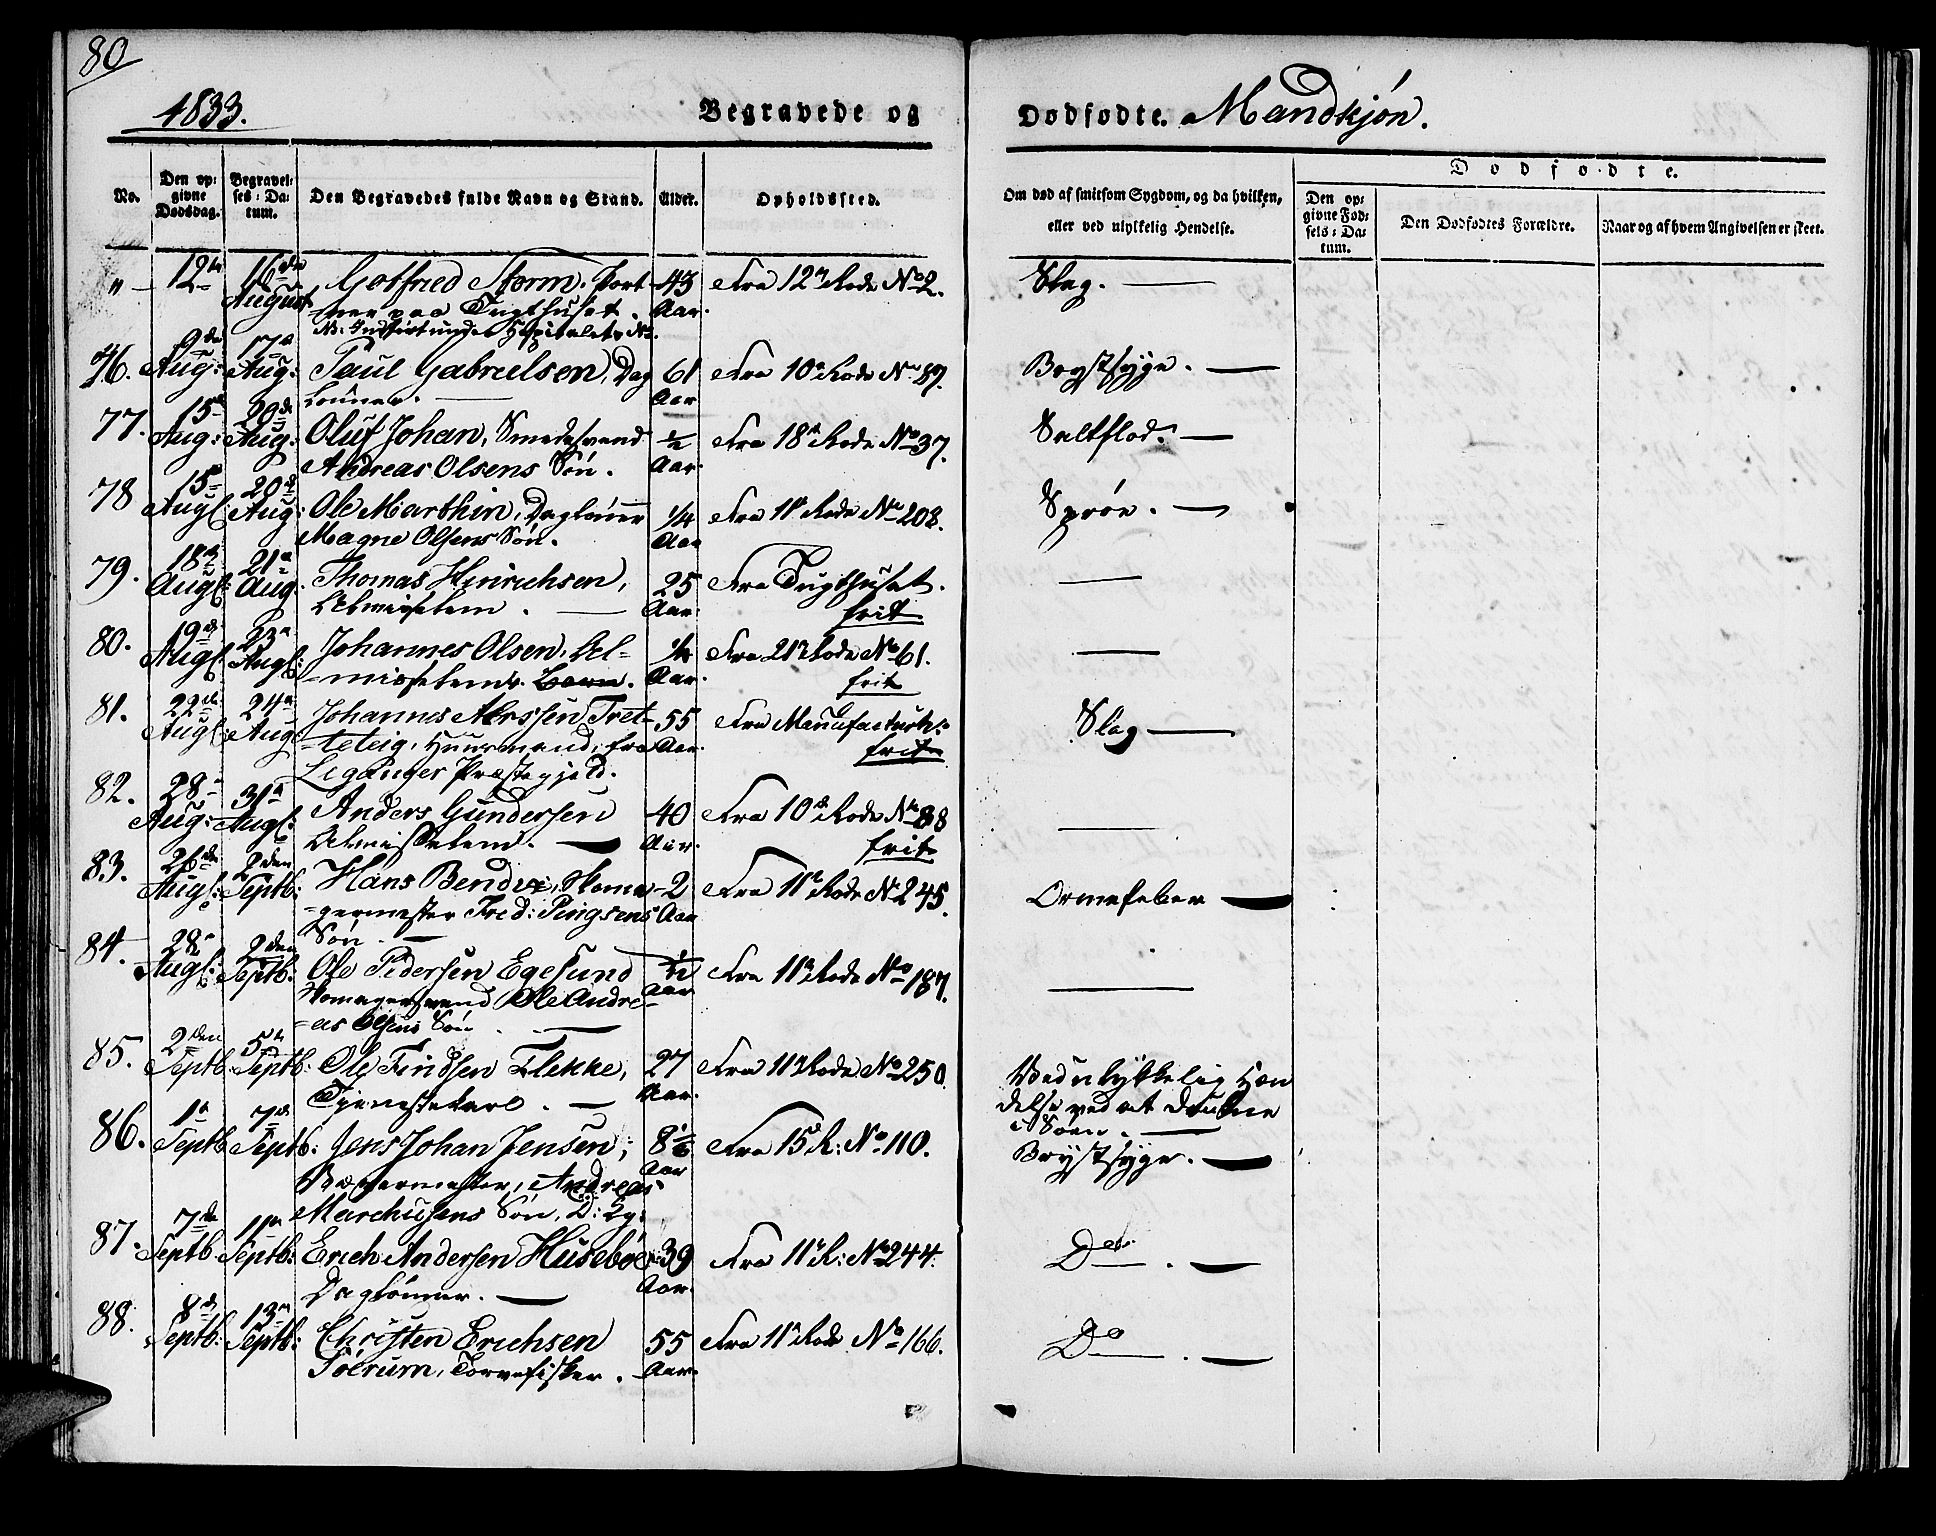 80
1833.
Begravede og Dødfødte. Mandkjøn.
No.
Den op-
givne
Dødsdag.
Begravel-
ses-Da-
tum.
Den Begravedes fulde Navn og Stand.
Alder.
Opholdssted.
Om død af smitsom Sygdom, og da hvilken,
eller ved ulykkelig Hendelse.
Dødfødte.
Den op-
givne Fød-
sels-Da-
tum.
Den Dødfødtes Forældre.
Naar og af hvem Angivelsen er skeet.
" 12te 16de August Gotfried Storm, Port-
ner paa Tugthuset.
43 Aar. Fra 12te Rode No 2. Slag.
76. 9de Aug: 17de Aug: Paul Gabrielsen, Dag
lønner. 61 Aar Fra 10de Rode No 87. Brystsyge.
77. 15de Aug: 20de Aug: Oluf Johan, Smedesvend
Andreas Olsens Søn. ½ Aar. Fra 18de Rode No 37. Saltflod.
78 15de Aug: 20de Aug: Ole Marthin, Dagløner
Magne Olsens Søn. ¼ Aar Fra 11te Rode No 208. Sprøe.
79. 18de Aug: 21de Aug: Thomas Hinrichsen,
Almisselem. 25 Aar. Fra Tugthuset.
frit
80. 19de Aug: 23de Aug: Johannes Olsen, Al-
misselems Barn. ¼ Aar. Fra 21de Rode No 61.
frit
81. 22de Aug: 24de Aug: Johannes Tret-
teteig, Huusmand, fra
Leganger Præstegjeld. 55 Aar. Fra Manufacturh:
frit Slag
82. 28de Aug: 31te Aug: Anders Gundersen
Almisselem. 40 Aar. Fra 10de Rode No 88
frit
83. 26de Aug: 2den Septb: Hans Bendix, Skoma-
germester Fred: Pingsens
Søn. 2 Aar Fra 11te Rode No 245. Ormefeber
84. 28de Aug: 2den Septb: Ole Pedersen Egesund
Skomagersvend Ole Andre-
as Olsens Søn. Aar Fra 11te Rode No 187.
85. 2den Septb. 5te Septb: Ole Findsen Flekke,
Tjenestekarl. 27 Aar. Fra 11te Rode No 250. Ved ulykkelig Hæn
delse ved at drukne
i Søen.
86. 1te Septb 7de Septb: Jens Johan Jensen,
Bagermester, Andreas
Marchusens Søn, D: Eg: 8½ Aar Fra 15de R: No 110. Brystsyge.
87. 7de Septb. 11te Septb: Erich Andersen Husebøe
Daglønner. 39 Aar. Fra 11te R: No 244. Do
88. 8de Septb: 13de Septb: Christen Erichsen
Soerum, Torvefisker. 55 Aar. Fra 11te Rode No 166. Do